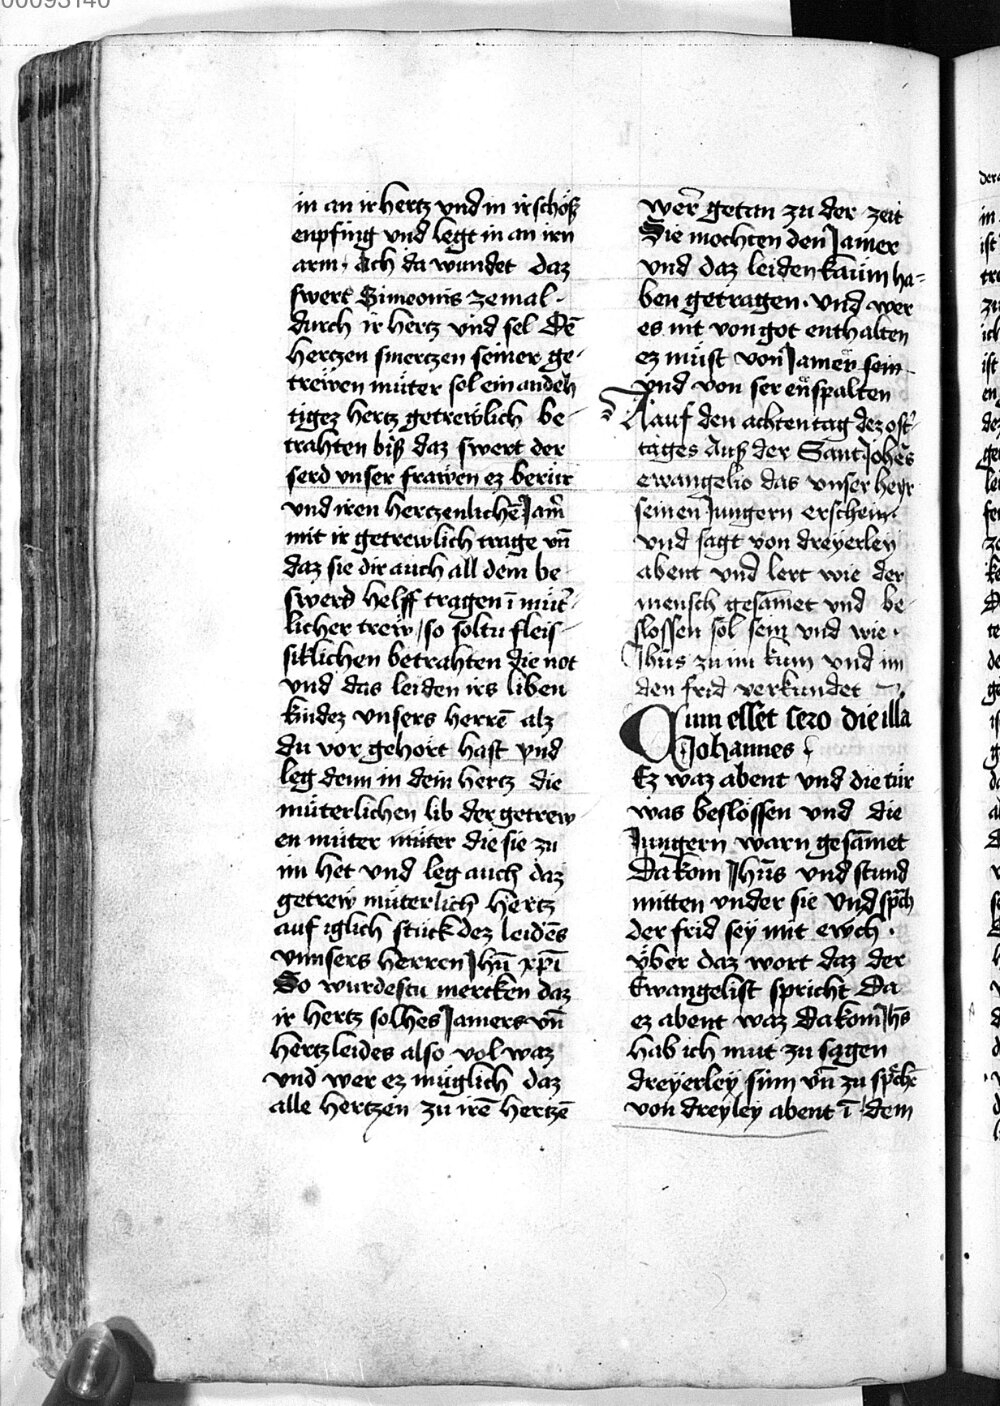 00093140
in an ir hertz vnd in ir schöß
enpfing vnd legt in an irn
arm · Ach da wundet daz
swert Simeonis zemal ·
durch ir hertz vnd sel Dē
hertzen smertzen seiner ge-
trewen müter sol ein andeh
tigez hertz getrewlich be-
trahten biß daz swert der
serd vnser frawen ez berür
vnd iren hertzenlichē Jam̄
mit ir getrewlich trage vn̄
daz sie dir auch all dein be
swerd helff tragen ī müt̄-
licher trew / so soltu fleis-
siklichen betrahten die not
vnd das leiden irs liben
kindez vnsers herrē alz
du vor gehört hast vnd
leg denn in dein hertz die
müterlichen lib der getrew-
en müter müter die sie zu
im het vnd leg auch daz
getrew müterlich hertz
auf iglich stück dez leidēs
vnnsers herren Jhū xp̄i
So wurdestu mercken daz
ir hertz solhes Jamers vn̄
hertzleides also vol waz
vnd wer ez müglich daz
alle hertzen zu irē hertzē
wer̄ getan zu der zeit
Sie mochten den Jamer
vnd daz leiden kaum ha=
ben getragen · vnd wer
es nit von got enthalten
ez müst von Jamer sein
vnd von ser enspalten
Aauf den achten tag dez ost̄-
tages Auß der Sant Johēs
ewangelio das vnser herr
seinen Jungern erschein
vnd sagt von dreyerley
abent vnd lert wie der
mensch gesāmet vnd be-
slossen sol sein vnd wie ·
Jhūs zu im kum vnd im
den frid verkundet
Cum esset sero die illa
Johannes
Ez waz abent vnd die tür
was beslossen vnd die
Jungern warn gesāmet
Da kom Jhūs vnd stund
mitten vnder sie vnd spch
der frid sey mit ewch ·
vber daz wort daz der
Ewangelist spricht Da
ez abent waz Da kom Jhs
hab ich mut zu sagen
dreyerley sinn vn̄ zu sp̄chē
von dreyley abent ī dem